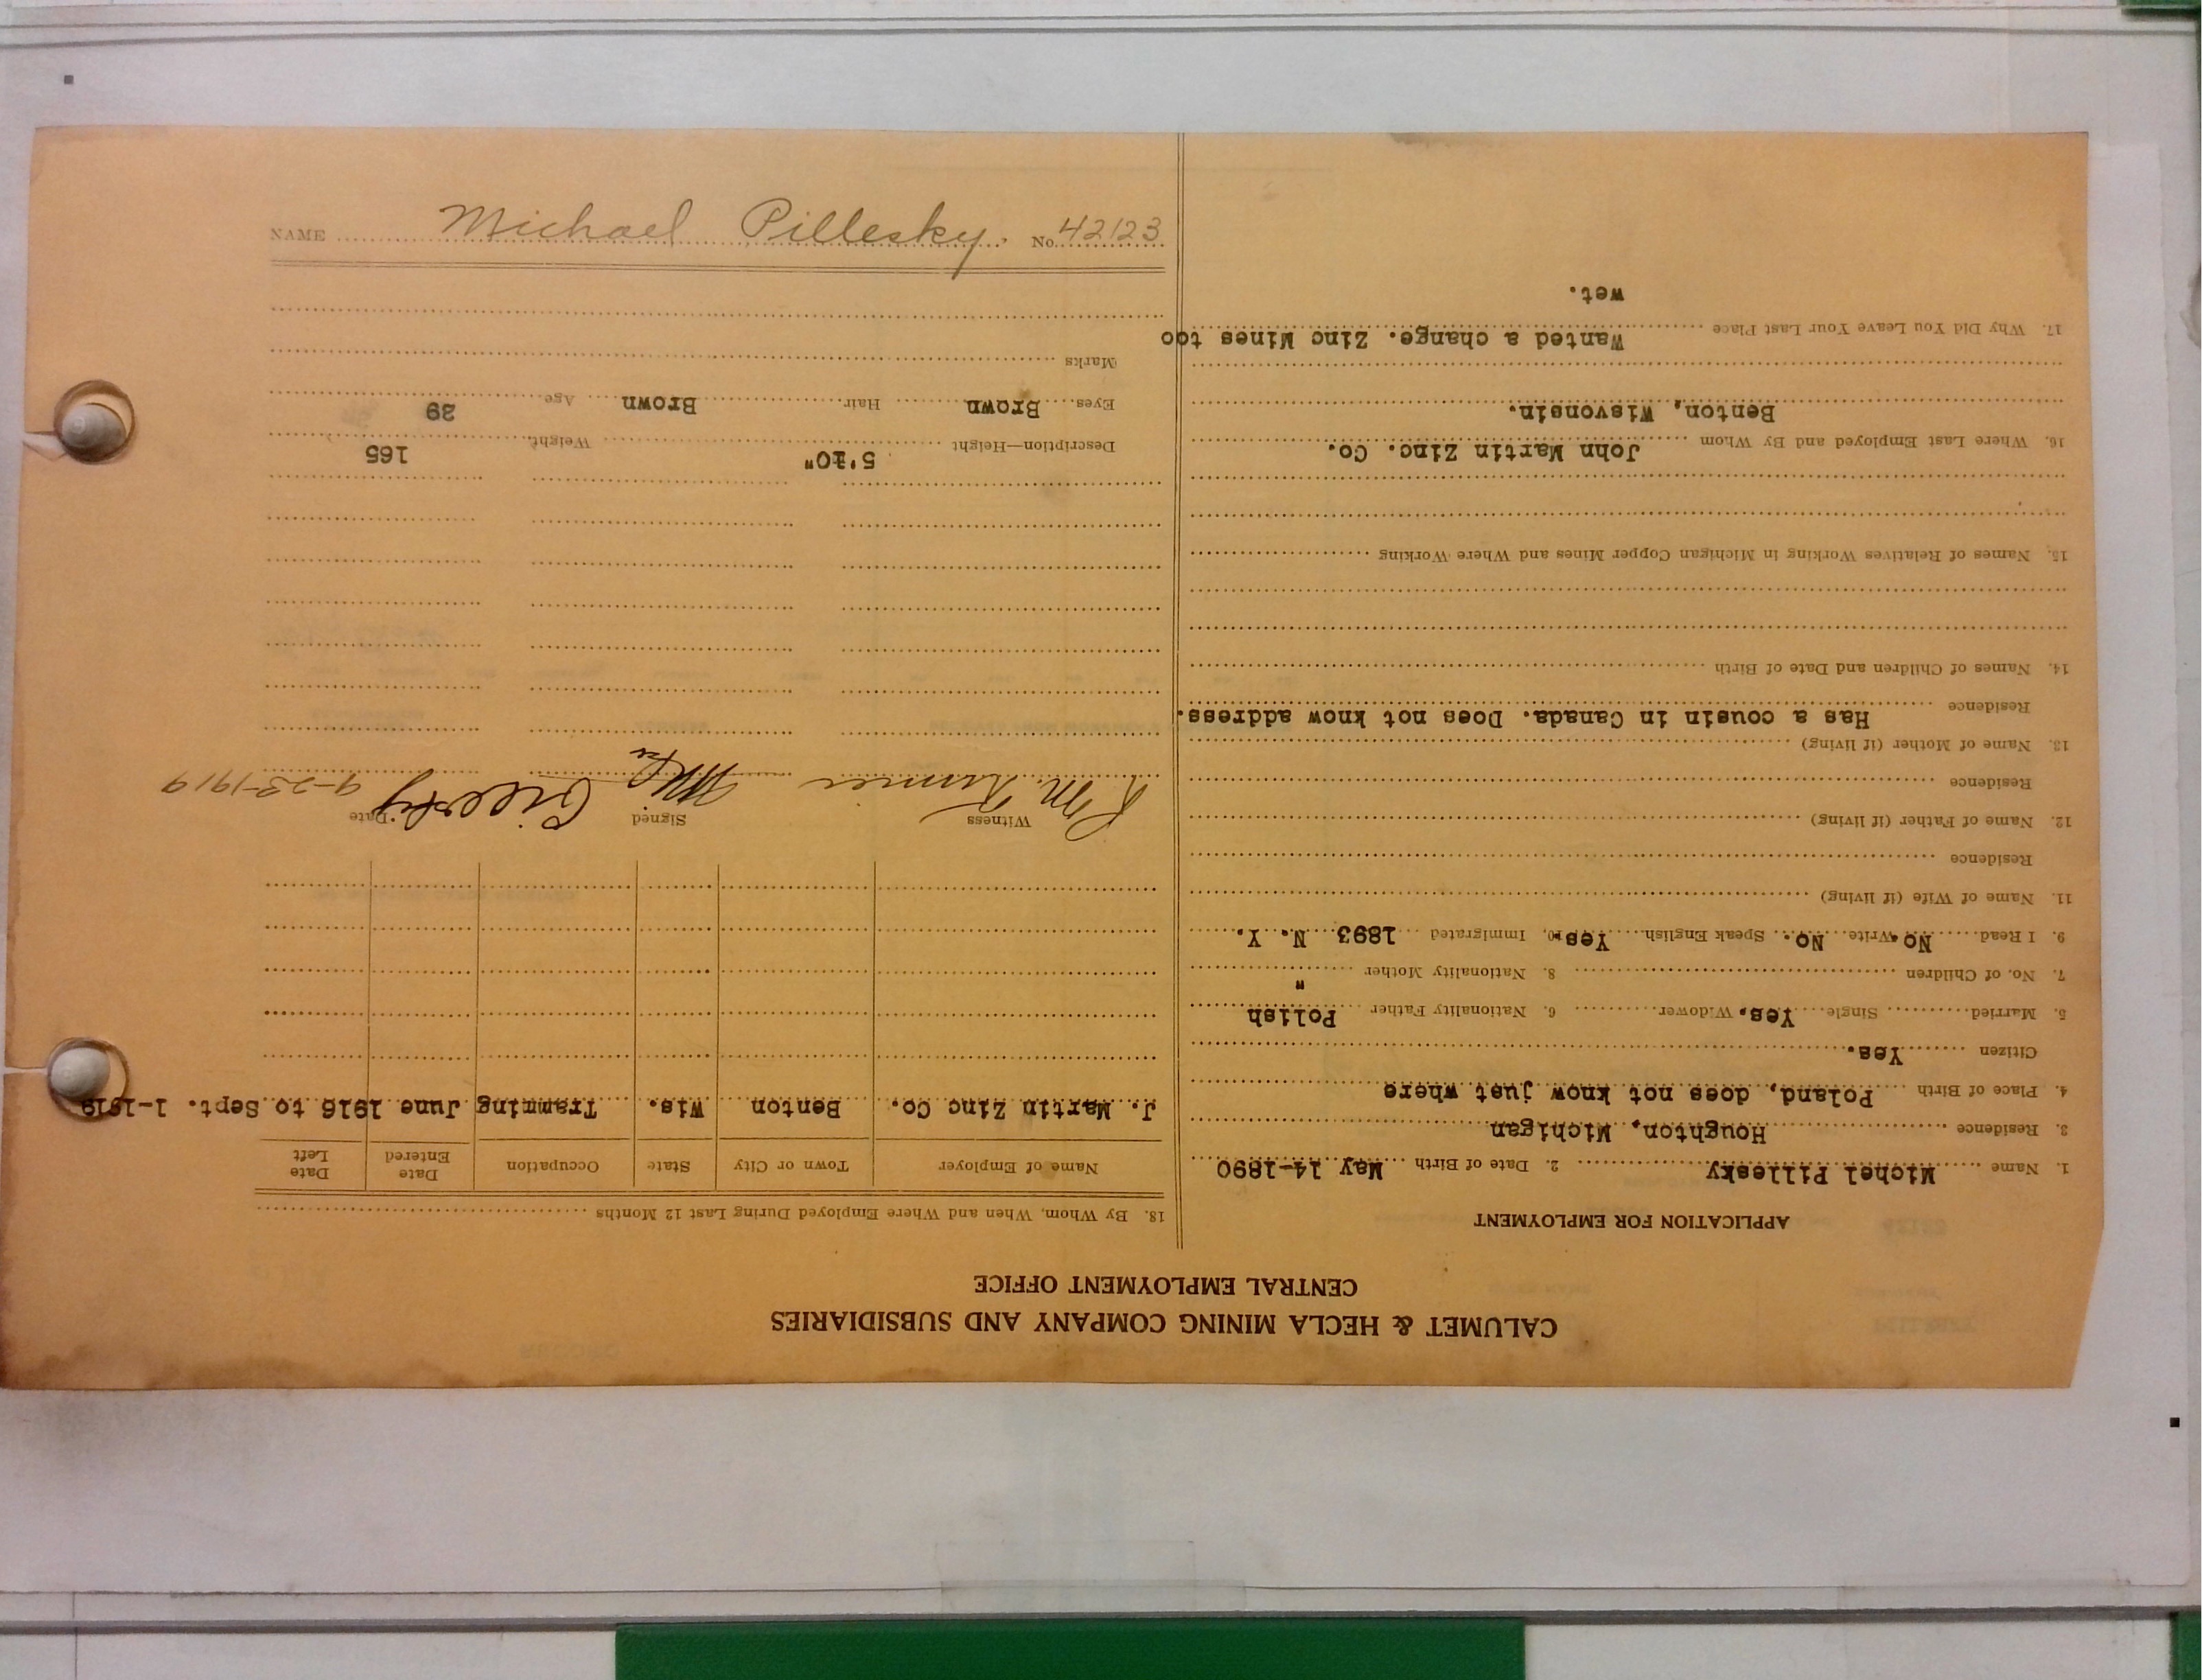 CALUMET & HECLA MINING COMPANY AND SUBSIDIARIES
CENTRAL EMPLOYMENT OFFICE
APPLICATION FOR EMPLOYMENT
1. Name Michel Pillesky 2. Date of Birth May 14-1890
3. Residence Houghton, Michigan
4. Place of Birth Poland, does not know just where
Citizen Yes.
5. Married Single Yes. Widower 6. Nationality Father Polish
7. No. of Children 8. Nationality Mother "
9. I Read No. Write No. Speak English Yes. 10. Immigrated 1893 N. Y.
11. Name of Wife (if living)
Residence
12. Name of Father (if living)
Residence
13. Name of Mother (if living)
Residence Has a cousin in Canada. Does not know address.
14. Names of Children and Date of Birth
15. Names of Relatives Working in Michigan Copper Mines and Where Working
16. Where Last Employed and By Whom John Martin Zinc. Co.
Benton, Wisvonsin.
17. Why Did You Leave Your Last Place Wanted a change. Zinc Mines too
wet.
18. By Whom, When and Where Employed During Last 12 Months
Name of Employer Town or City State Occupation Date Entered Date Left
J. Martin Zinc Co. Benton Wis. Tramming June 1916 to Sept. 1-1919
Witness Signed Date
R. M. 9-23-1919
Description—Height 5'10" Weight 165
Eyes Brown Hair Brown Age 29
Marks
NAME Michael Pillesky. No. 42123